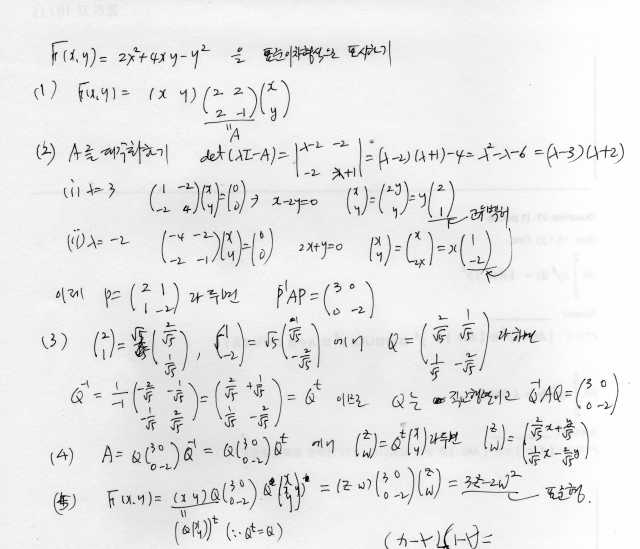 F(x,y) = 2x²+4xy-y² 을 표준이차형식으로 표시하기
(1) F(x,y) = (x y) (2 2 / 2 -1) (x / y)
A
(2) A를 대각화하기 det(λI-A) = |λ-2 -2 / -2 λ+1| = (λ-2)(λ+1)-4 = λ²-λ-6 = (λ-3)(λ+2)
(i) λ=3 (1 -2 / -2 4) (x / y) = (0 / 0) → x-2y=0 (x / y) = (2y / y) = y (2 / 1) 고유벡터
(ii) λ=-2 (-4 -2 / -2 -1) (x / y) = (0 / 0) 2x+y=0 (x / y) = (x / -2x) = x (1 / -2)
이제 P = (2 1 / 1 -2) 라 두면 P⁻¹AP = (3 0 / 0 -2)
(3) (2 / 1) = √5 (2/√5 / 1/√5), (1 / -2) = √5 (1/√5 / -2/√5) 에서 Q = (2/√5 1/√5 / 1/√5 -2/√5) 라 하면
Q⁻¹ = 1/-1 (-2/√5 -1/√5 / -1/√5 2/√5) = (2/√5 +1/√5 / 1/√5 -2/√5) = Qᵗ 이므로 Q는 직교행렬이고 Q⁻¹AQ = (3 0 / 0 -2)
(4) A = Q (3 0 / 0 -2) Q⁻¹ = Q (3 0 / 0 -2) Qᵗ 에서 (z / w) = Qᵗ (x / y) 라 두면 (z / w) = (2/√5 x + 1/√5 y / 1/√5 x - 2/√5 y)
(5) F(x,y) = (x y) Q (3 0 / 0 -2) Qᵗ (x / y) = (z w) (3 0 / 0 -2) (z / w) = 3z²-2w² 표준형.
(Q (x / y))ᵗ (∵ Qᵗ=Q)